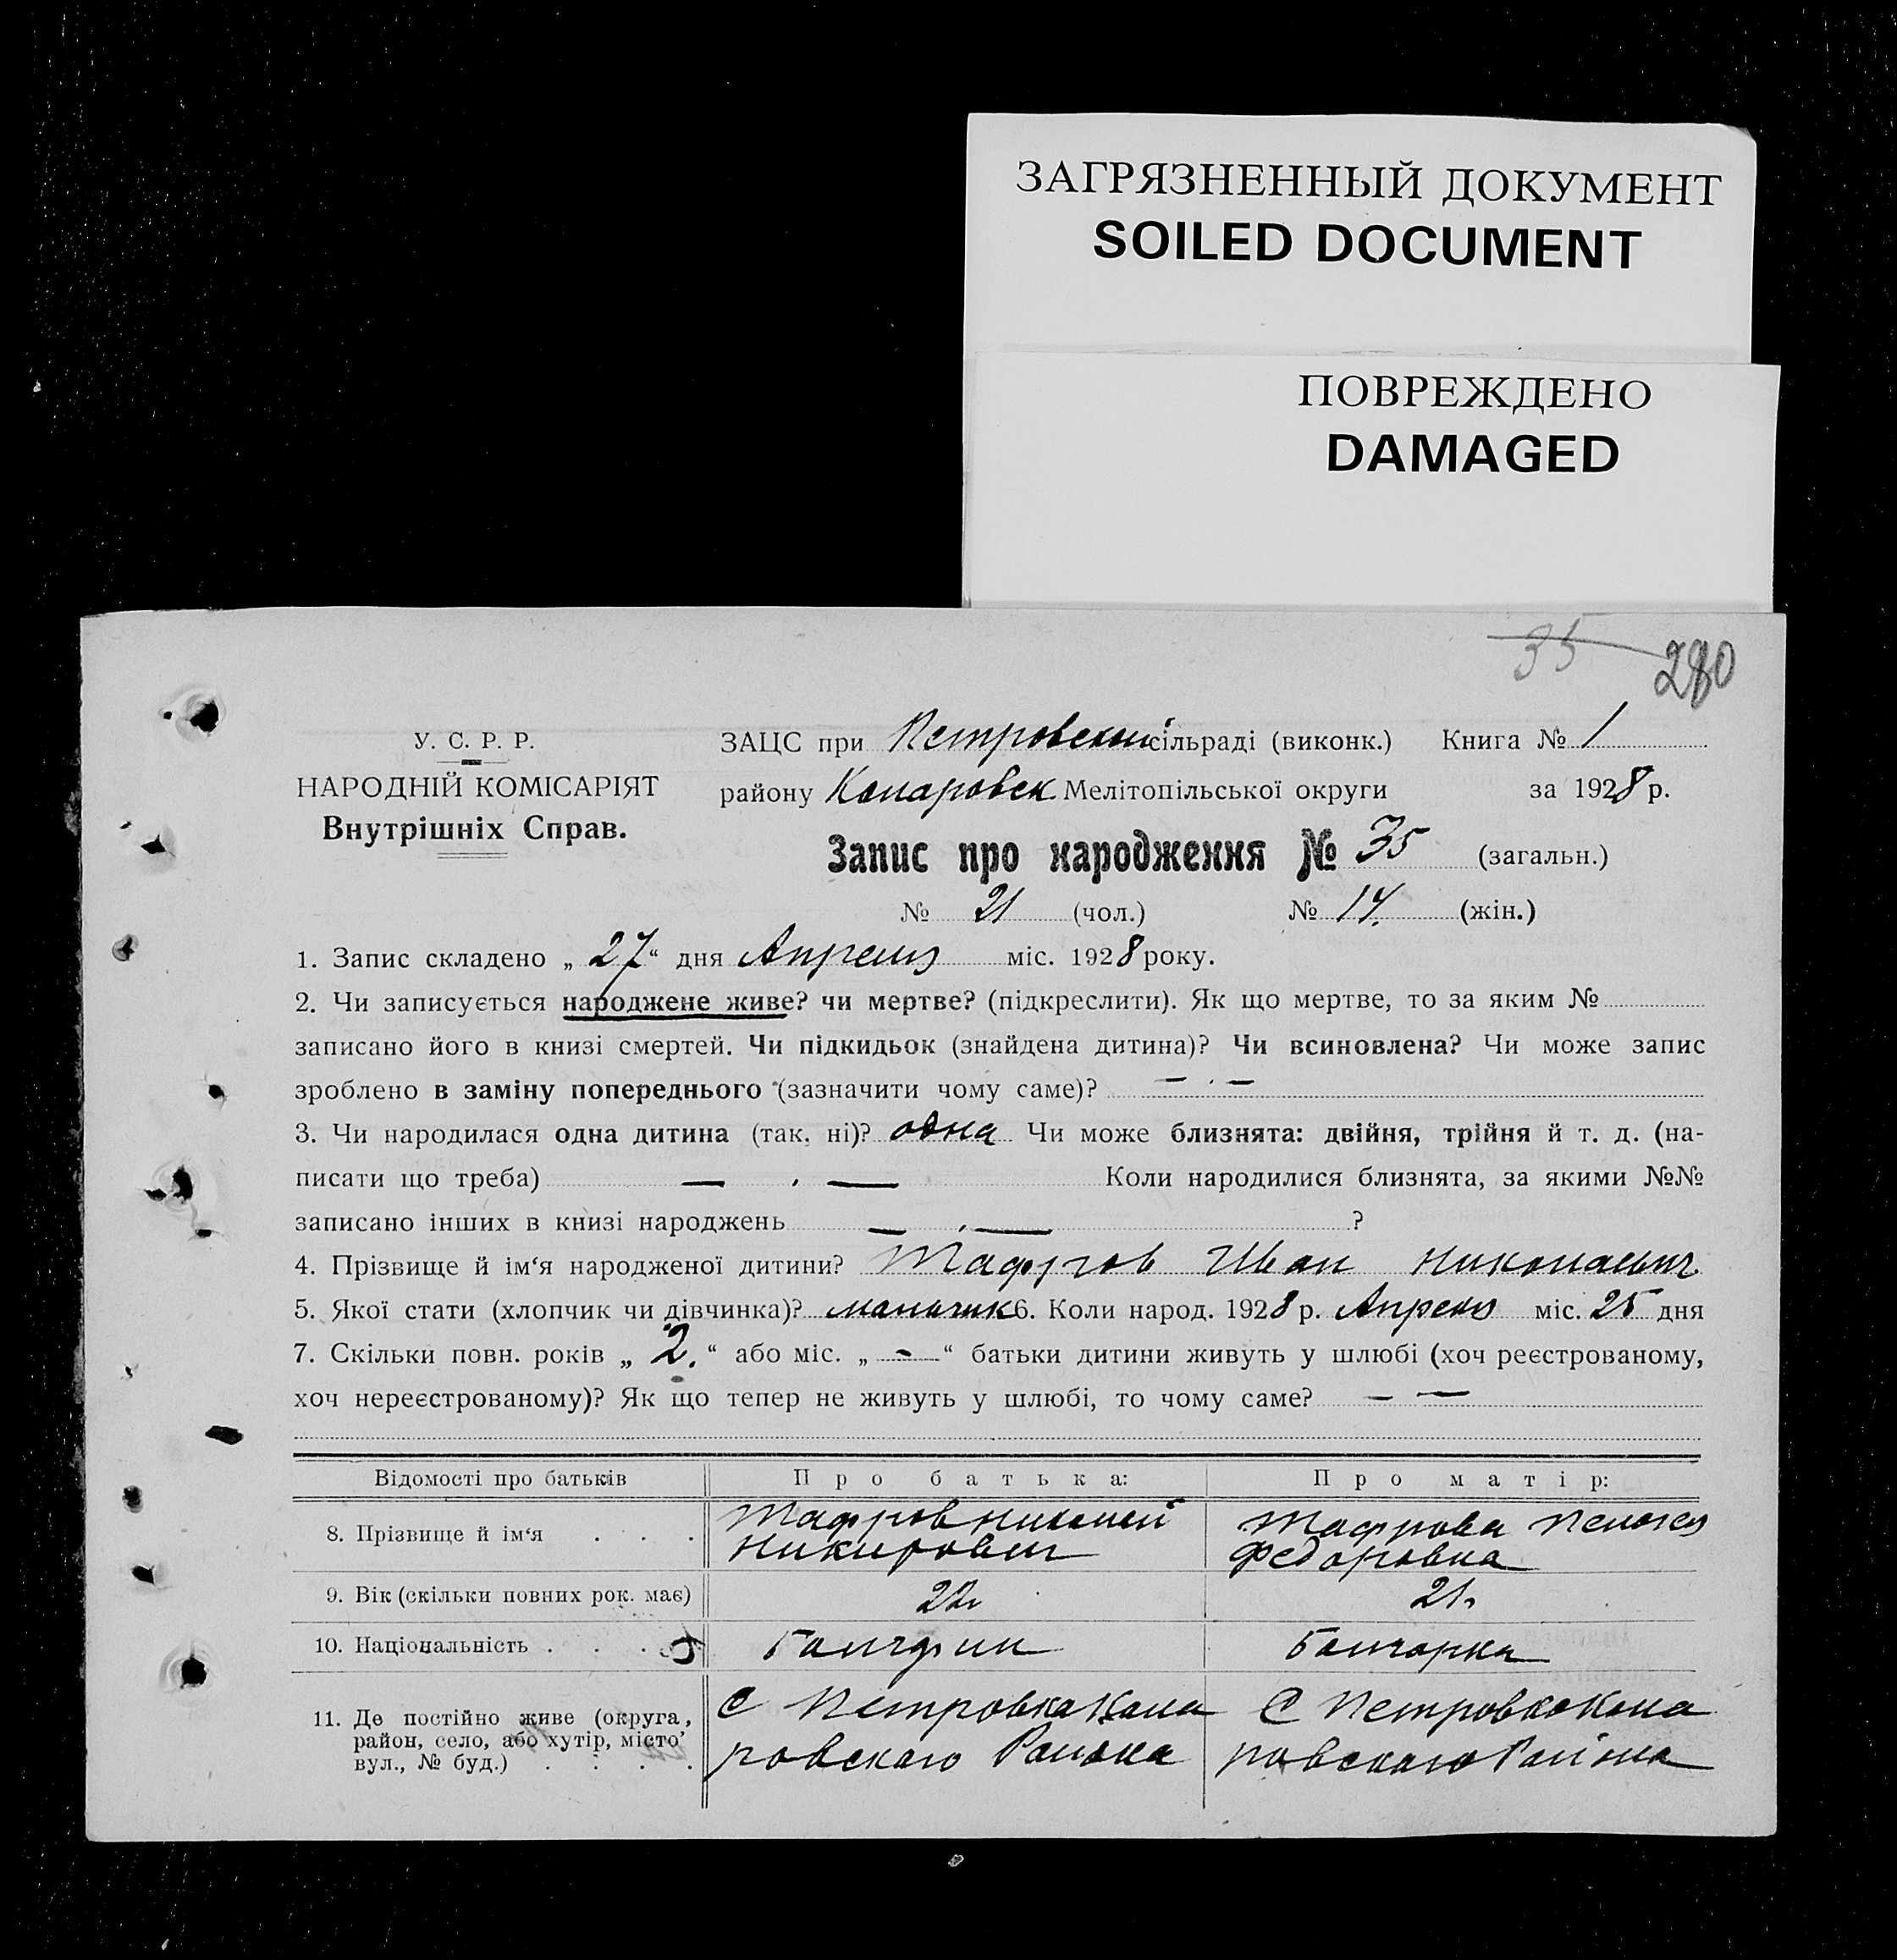 ЗАГРЯЗНЕННЫЙ ДОКУМЕНТ
SOILED DOCUMENT
ПОВРЕЖДЕНО
DAMAGED
35 280
У. С. Р. Р.
НАРОДНІЙ КОМІСАРІЯТ
Внутрішніх Справ.
ЗАЦС при Петровской сільраді (виконк.) Книга № 1
району Коларовск Мелітопільської округи за 1928 р.
Запис про народження № 35 (загальн.)
№ 21 (чол.) № 14. (жін.)
1. Запис складено „ 27 “ дня Апреля міс. 1928 року.
2. Чи записується народжене живе? чи мертве? (підкреслити). Як що мертве, то за яким №
записано його в книзі смертей. Чи підкидьок (знайдена дитина)? Чи всиновлена? Чи може запис
зроблено в заміну попереднього (зазначити чому саме)? — . —
3. Чи народилася одна дитина (так, ні)? одна Чи може близнята: двійня, трійня й т. д. (на-
писати що треба) — . — Коли народилися близнята, за якими №№
записано інших в книзі народжень — . — ?
4. Прізвище й ім‘я народженої дитини? Тафров Иван Николаевич
5. Якої стати (хлопчик чи дівчинка)? мальчик 6. Коли народ. 1928 р. Апреля міс. 25 дня
7. Скільки повн. років „ 2. “ або міс. „ - “ батьки дитини живуть у шлюбі (хоч реєстрованому,
хоч нереєстрованому)? Як що тепер не живуть у шлюбі, то чому саме? — —
Відомості про батьків Про батька: Про матір:
8. Прізвище й ім‘я . . . Тафров Николай Тафрова Пелагея
Никифорович Федоровна
9. Вік (скільки повних рок. має) 21.
10. Національність . . . Болгарин Болгарка
11. Де постійно живе (округа, район, село, або хутір, місто, вул., № буд.) . . . . С Петровка Кола С Петровка Кола
ровскаго Района ровскаго Района